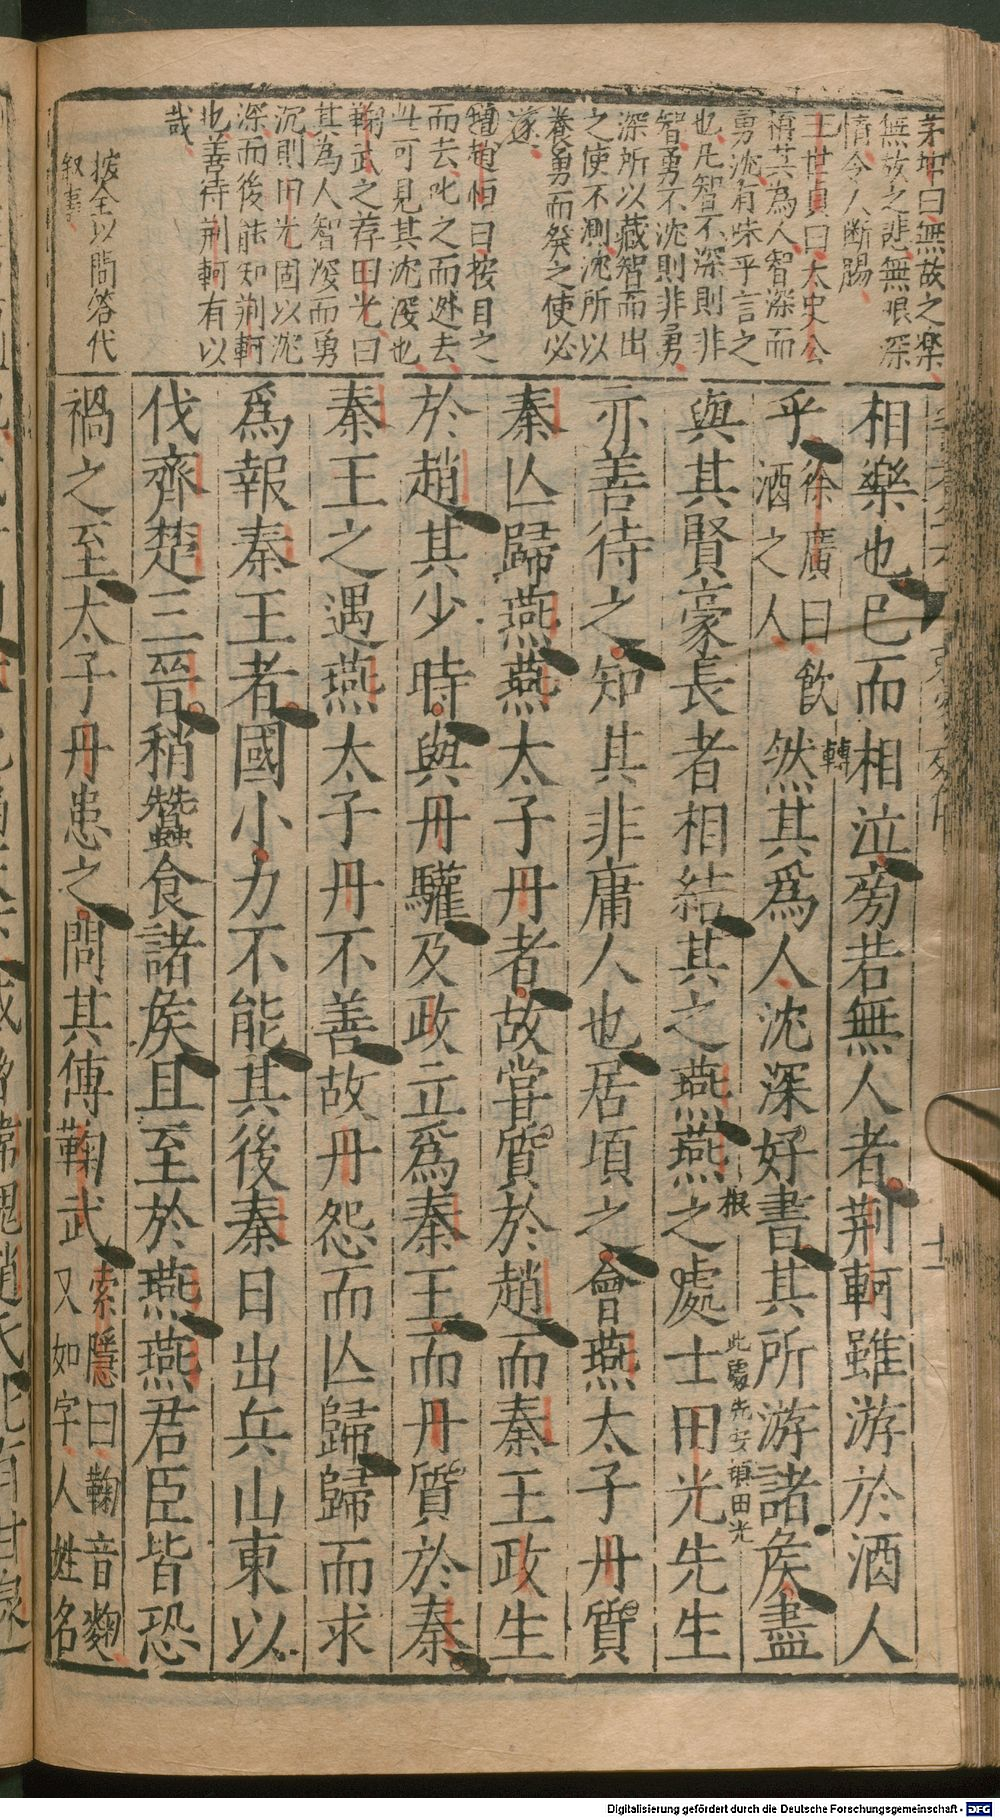 茅坤曰無故之樂
無故之悲無限深
情今人斷腸
王世貞曰太史公
稱其為人智深而
勇沈有味乎言之
也凡智不深則非
智勇不沈則非勇
深所以藏智而出
之使不測沈所以
養勇而發之使必
遂
董份曰按目之
而去叱之而逃去
此可見其沈深也
鞠武之荐田光曰
其為人智深而勇
沉則田光固以沈
深而後能知荆軻
也善待荆軻有以
哉
按全以問答代
叙事
相樂也已而相泣旁若無人者荆軻雖游於酒人
乎徐廣曰飲酒之人然其爲人沈深好書其所游諸矦盡
轉
與其賢豪長者相結其之燕燕之處士田光先生
根
此處先安頓田光
亦善待之知其非庸人也居頃之會燕太子丹質
秦亾歸燕燕太子丹者故嘗質於趙而秦王政生
於趙其少時與丹驩及政立爲秦王而丹質於秦
秦王之遇燕太子丹不善故丹怨而亾歸歸而求
爲報秦王者國小力不能其後秦日出兵山東以
伐齊楚三晉稍蠶食諸矦且至於燕燕君臣皆恐
禍之至太子丹患之問其傅鞠武索隱曰鞠音麴又如字人姓名
十一
Digitalisierung gefördert durch die Deutsche Forschungsgemeinschaft - DFG